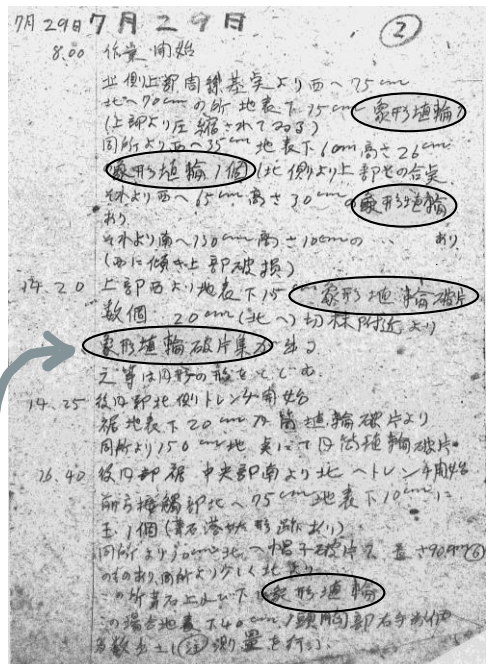 7月29日 7月29日 ②
8.00 作業開始
北側上部周線基点より西へ75cm
北へ70cmの所地表下15cm 家形埴輪
(上部より圧縮されてゐる)
同所より西へ35cm地表下6cm高さ26cm
家形埴輪1個(北側より上部との合点
それより西へ65cm高さ30cmの家形埴輪
あり
それより南へ130cm高さ10cmの 〃 あり
(西に傾き上部破損)
14.20 上部西より地表下15cm 家形埴輪破片
数個 20cm(北へ)切株附近より
家形埴輪破片集
之等は円形の形を
14.25 後円部北側トレンチ開始
裾地表下20cm円筒埴輪破片より
同所より150cm地点にて円筒埴輪破片
16.40 後円部裾中央部南より北へトレンチ開始
前方接觸部北へ75cm地表下10cmに
玉1個
同所より30cm北へ帽子破片
のものあり同所より少しく北より
この所葺石上及び下に家形埴輪
この場合地表下40cm
多数出土 測量を行う